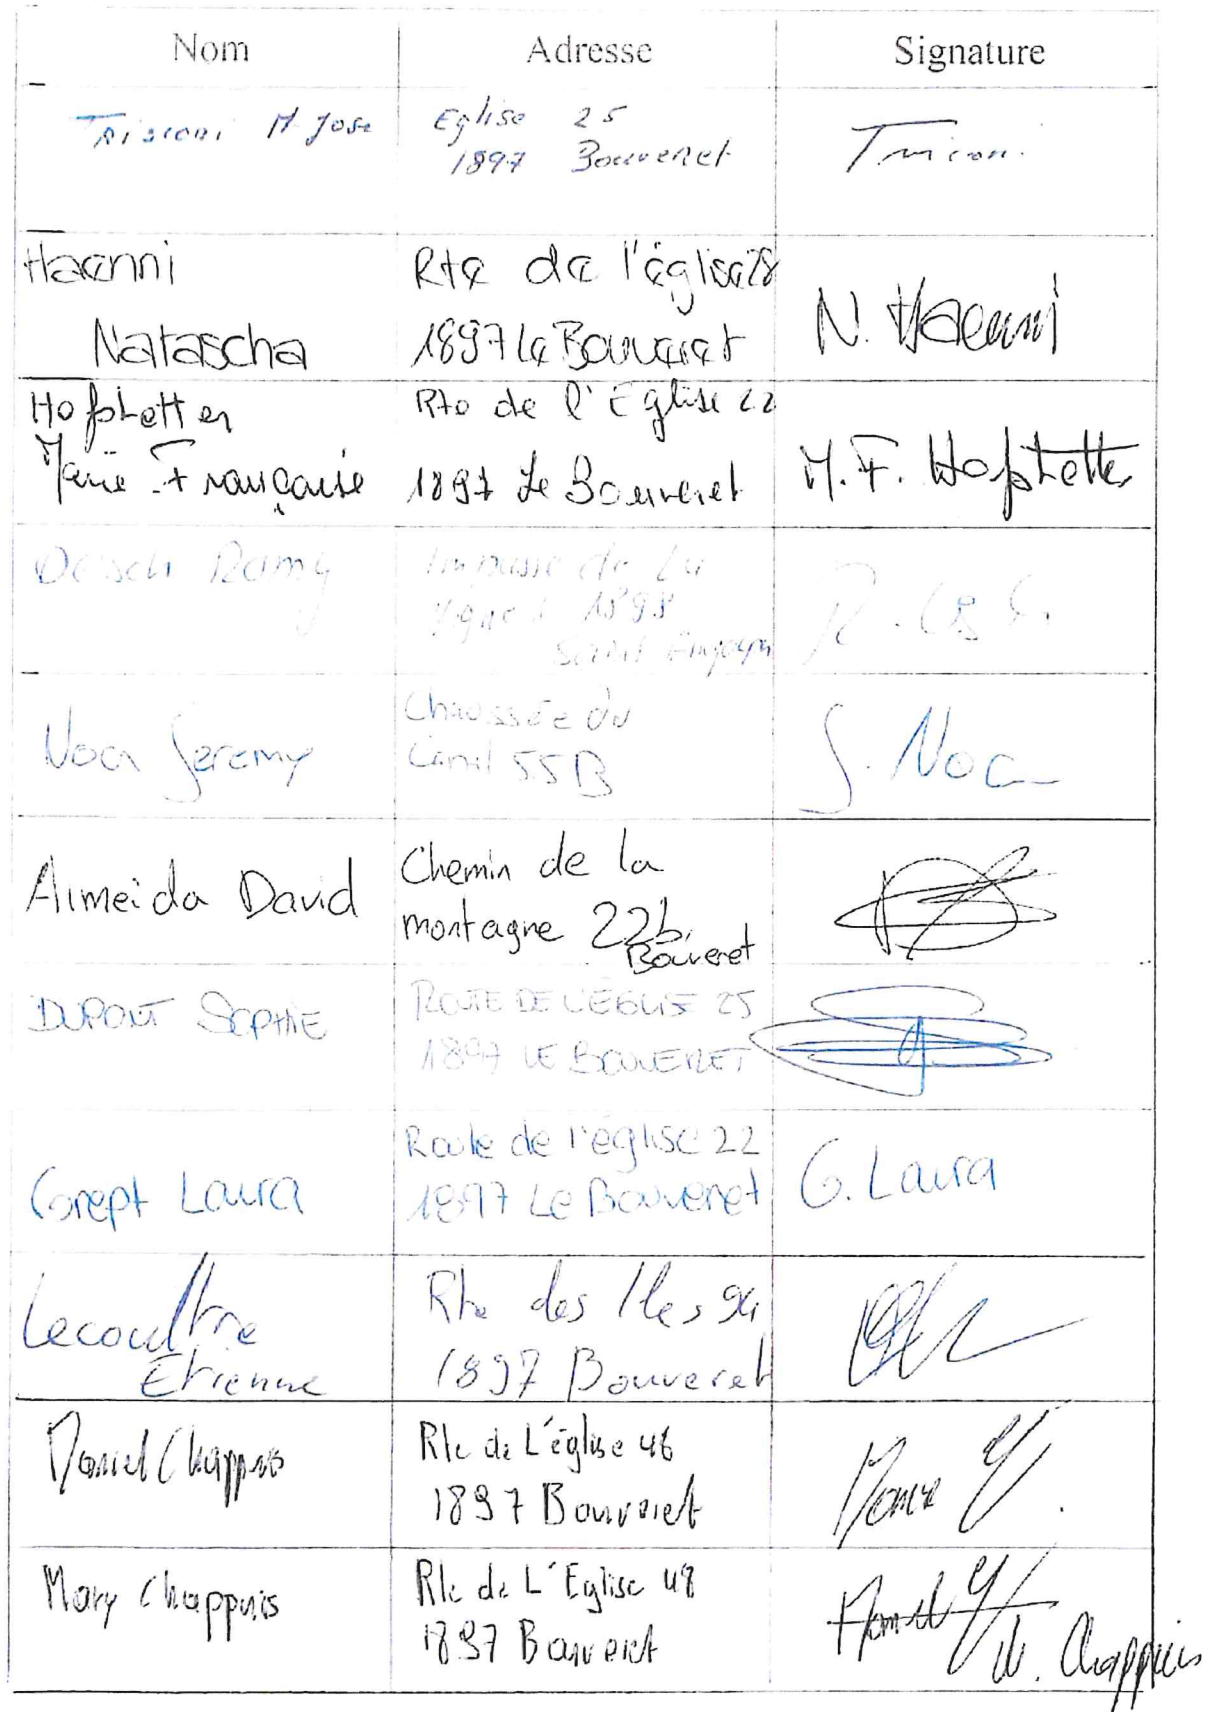 Nom Adresse Signature
Trisconi M José Eglise 25
1897 Bouveret
Trisconi
Haenni
Natascha
Rte de l'église 28
1897 Le Bouveret
N. Haenni
Hofstetter
Marie-Françoise
Rte de l'Eglise 22
1897 Le Bouveret
M.F. Hofstetter
Impasse de La
1898
Saint Gingolph
Noca Jeremy
Chaussée du
Canal 55B
J. Noca
Almeida David
Chemin de la
montagne 22b,
Bouveret
DUPONT SOPHIE
ROUTE DE L'ÉGLISE 25
1897 LE BOUVERET
Grept Laura
Route de l'église 22
1897 Le Bouveret
G. Laura
Lecoultre
Etienne
Rte des Iles 94
1897 Bouveret
Daniel Chappuis
Rte de L'église 48
1897 Bouveret
Mary Chappuis
Rte de L'Eglise 48
1897 Bouveret
M. Chappuis